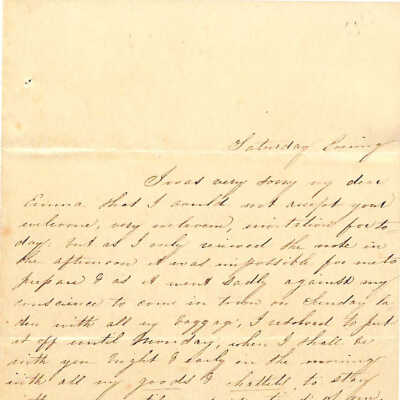 Saturday Evening
I was very sorry my dear
Emma that I could not accept your
welcome, very welcome, invitation for to
day. but as I only received the note in
the afternoon it was impossible for me to
prepare & as it went sadly against my
conscience to come in town on Sunday la
den with all my baggag, I resolved to put
it off until Monday, when I shall be
with you bright & early in the morning
with all my goods & chattels to stay